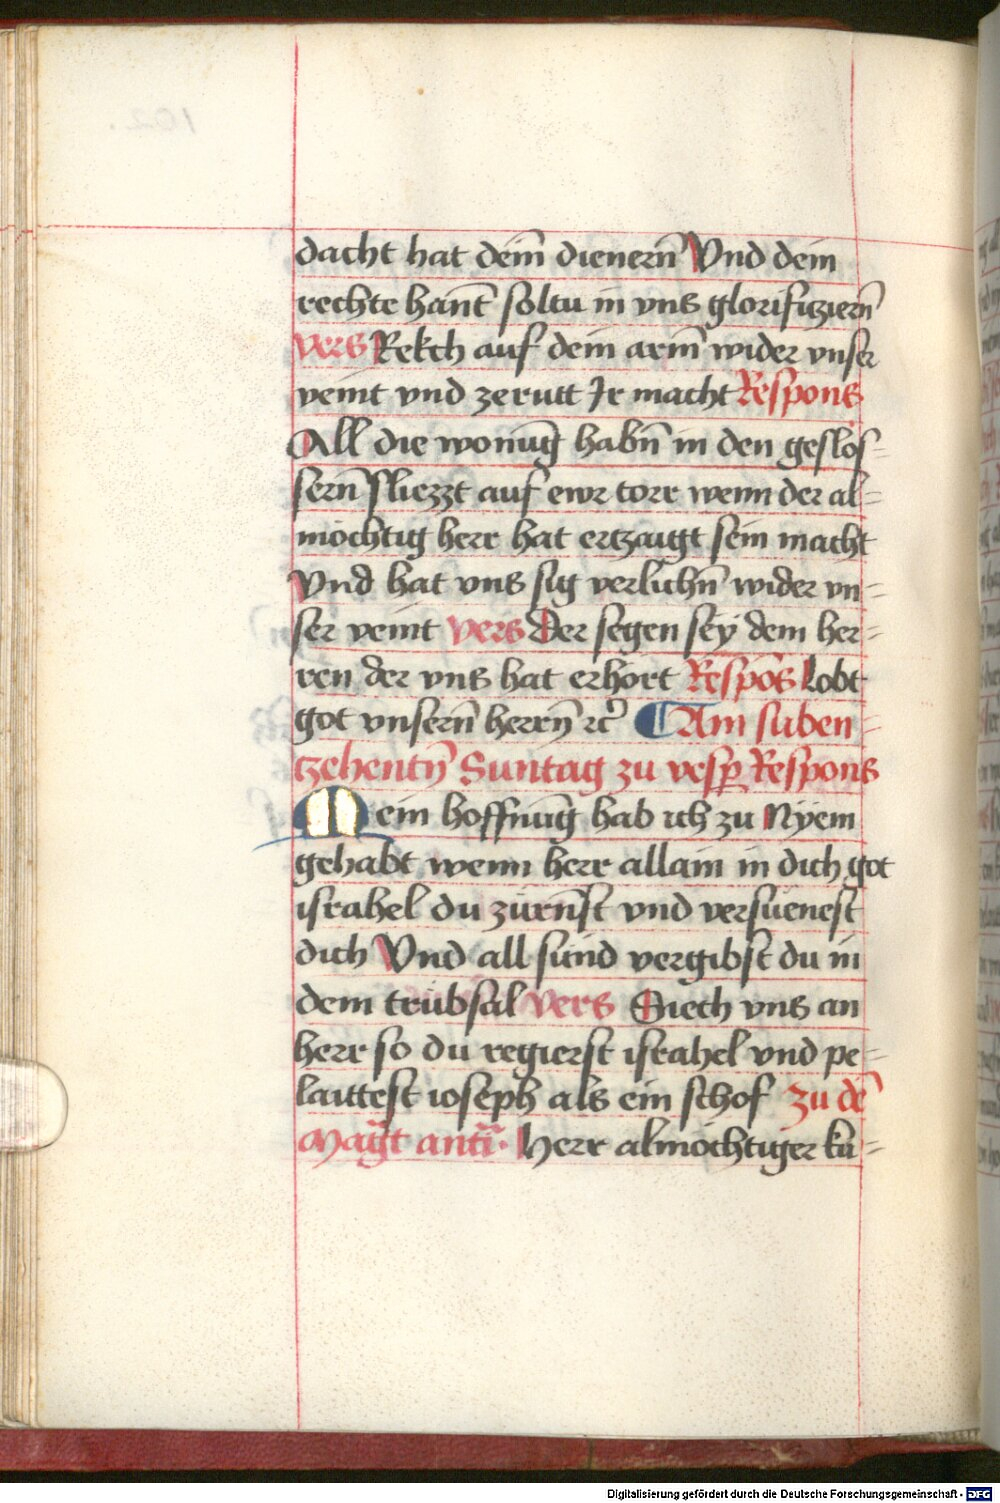 dacht hat deim̄ dienern̄ Vnd dem
rechte han̄t soltu in vns glorifiziern̄
vers Rekch auf dein arm̄ wider vnser
veint vnd zerutt Jr macht Respons
All die wonūg habn̄ in den geslos-
sern̄ Sliezzt auf ewr torr wenn der al-
möchtig herr hat ertzaigt sein macht
Vnd hat vns sig verlichn̄ wider vn-
ser veint vers Der segen sey dem her-
ren der vns hat erhört Respōs Lobt
got vnsern̄ herrn̄ ꝛc̄ ¶ Am siben-
tzehentn̄ Suntag zu vesꝑ Respons
Mein hoffnūg hab ich zu Nyem
gehabt wenn herr allain in dich got
israhel du zürn̄st vnd versüenest
dich Vnd all sünd vergibst du in
dem trübsal vers Siech vns an
herr so du regierst israhel vnd pe-
laittest ioseph als ein schof zu dē
Magt̄ anti͞. Herr almöchtiger kü-
Digitalisierung gefördert durch die Deutsche Forschungsgemeinschaft - DFG